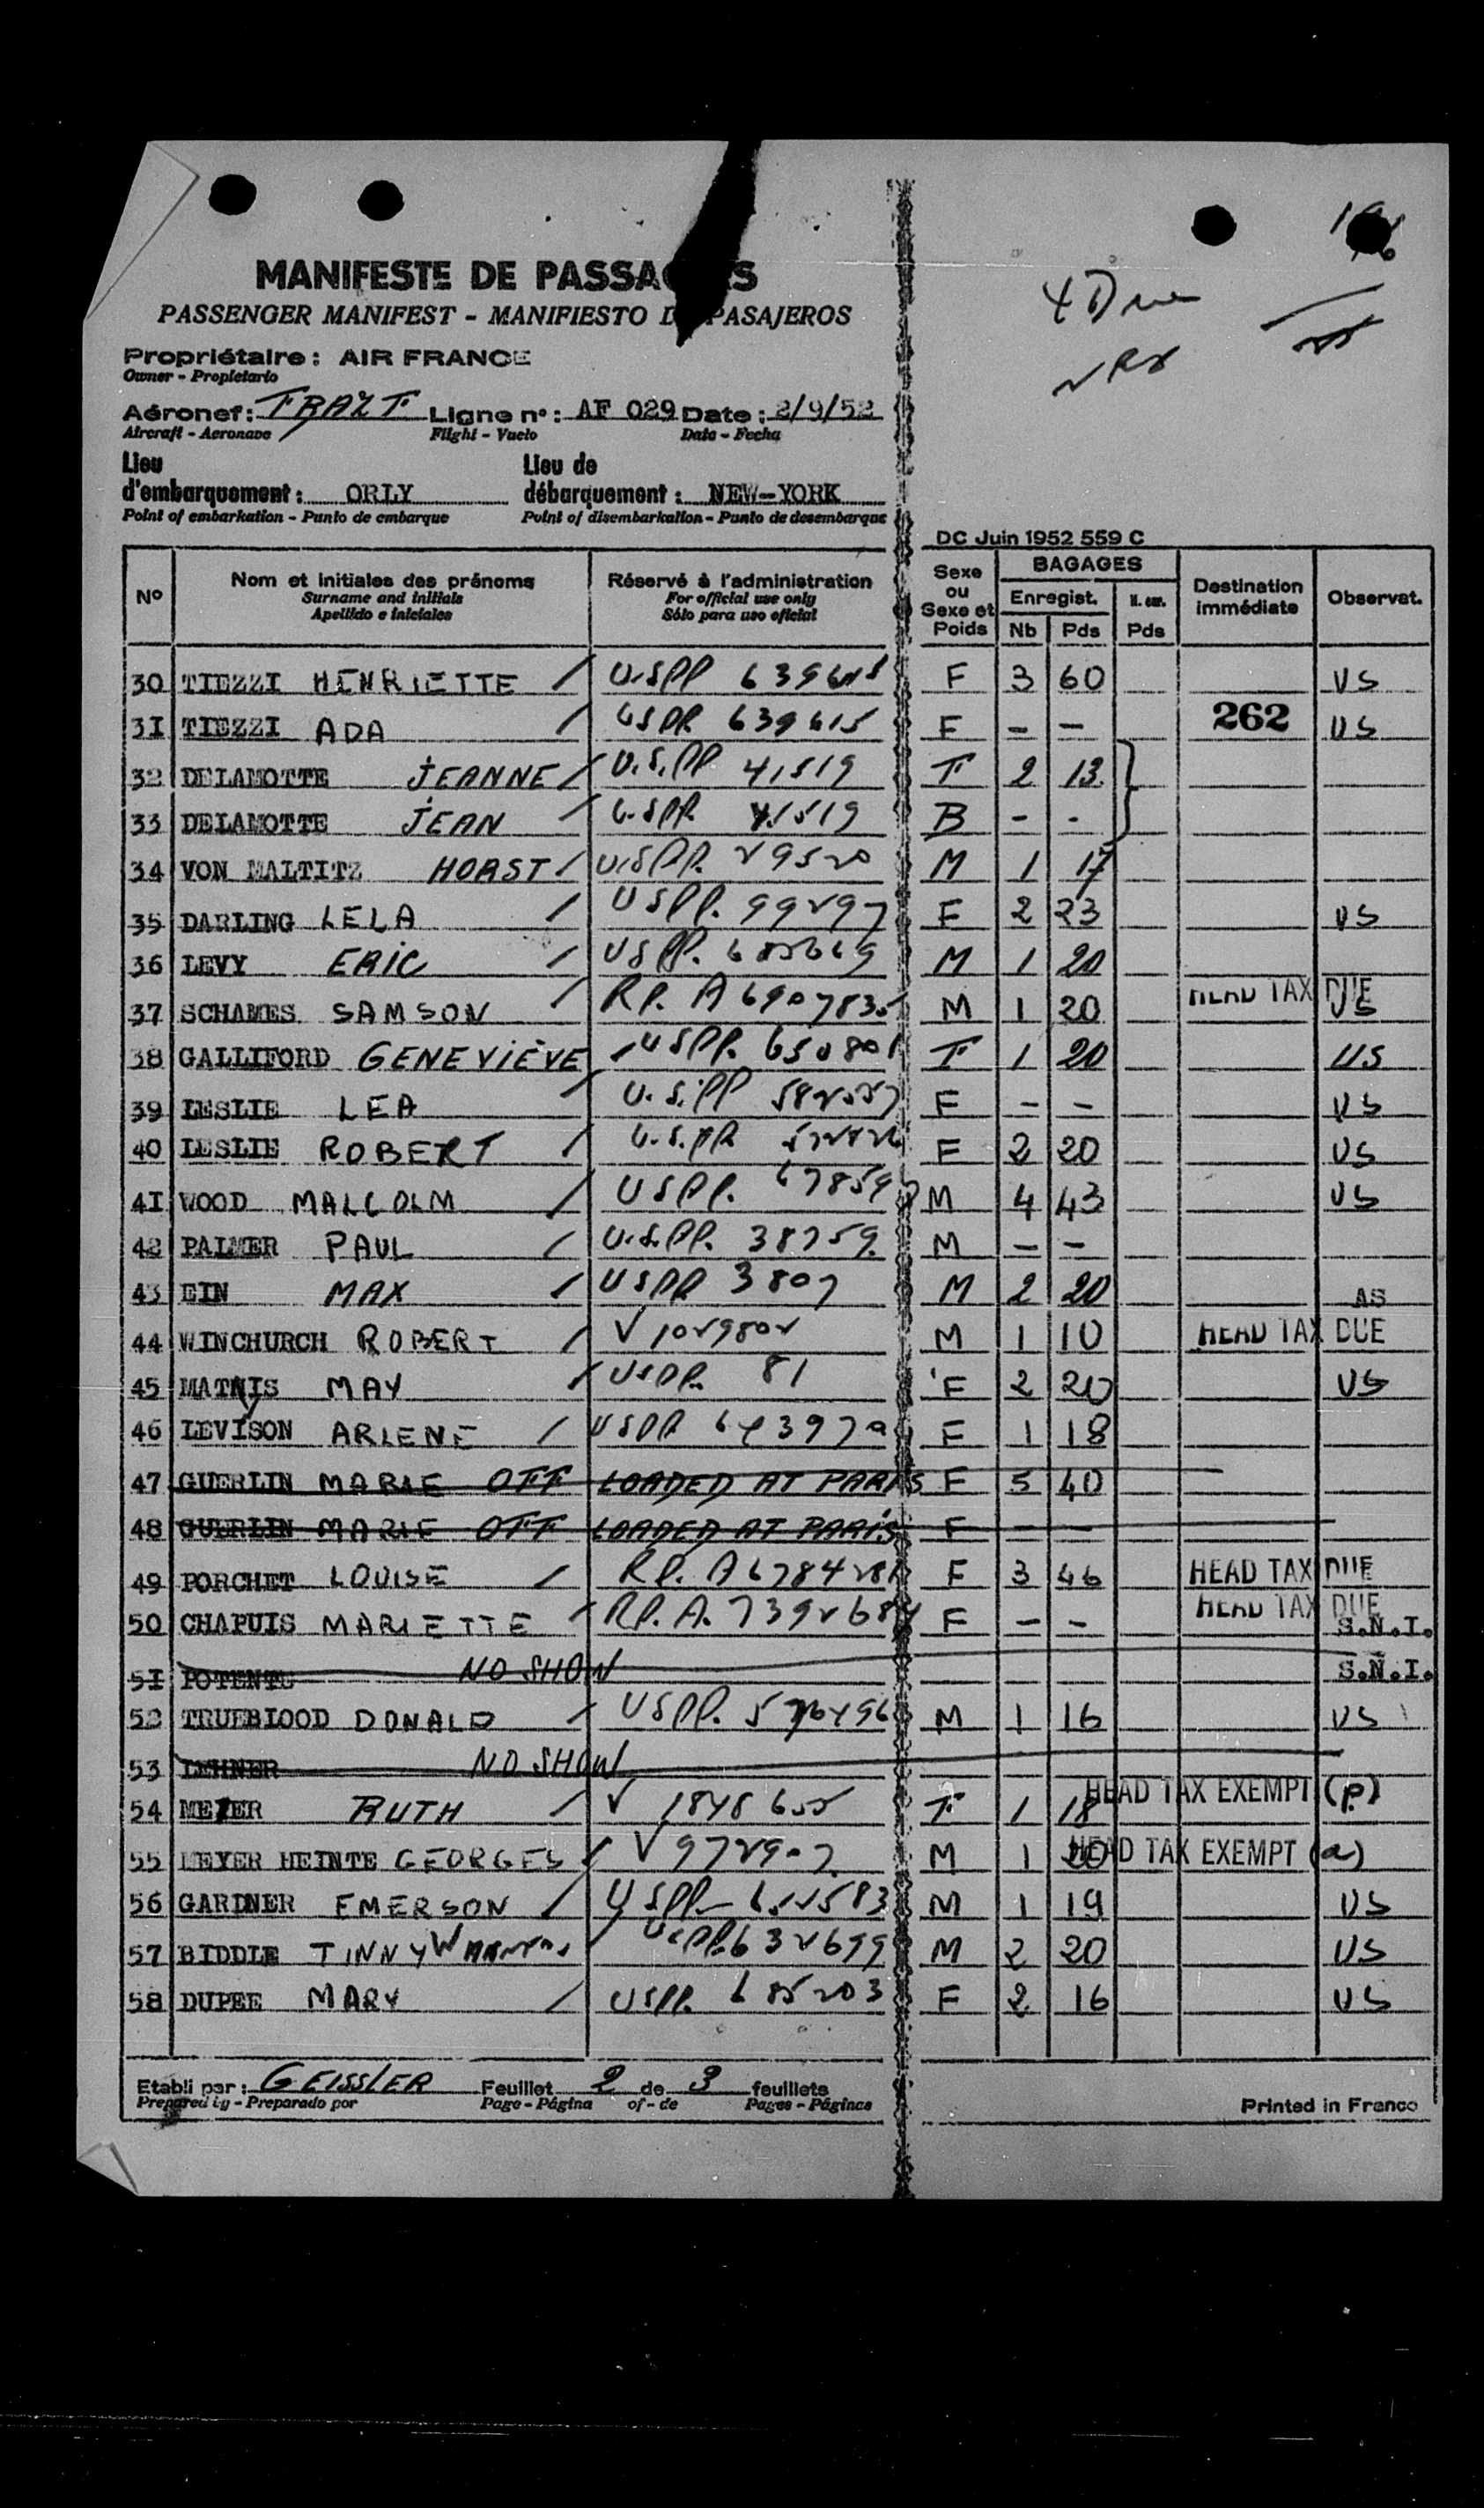 4 Due
MANIFESTE DE PASSA S
PASSENGER MANIFEST - MANIFIESTO D PASAJEROS
Propriétaire : AIR FRANCE
Owner - Propietario
Aéronef : Ligne n° : AF 029 Date : 2/9/52
Aircraft - Aeronave Flight - Vuelo Date - Fecha
Lieu d'embarquement : ORLY
Point of embarkation - Punto de embarque
Lieu de débarquement : NEW-YORK
Point of disembarkation - Punto de desembarque
DC Juin 1952 559 C
N° Nom et initiales des prénoms Réservé à l'administration Sexe ou Sexe et Poids BAGAGES Destination immédiate Observat.
Surname and initials For official use only Enregist.
Apellido e iniciales Sólo para uso oficial Nb Pds Pds
30 TIEZZI HENRIETTE / U.S.PP F 3 60 US
31 TIEZZI ADA / USPP 639615 F - - 262 US
32 DELAMOTTE JEANNE / U.S.PP 41519 F 2 13
33 DELAMOTTE JEAN / USPP. 41519 B - -
34 VON MALTITZ HORST / U.S.PP. 29520 M 1 17
35 DARLING LELA / USPP. 99297 F 2 23 US
36 LEVY ERIC / USPP. M 1 20
37 SCHAMES SAMSON / RP. A 6907835 M 1 20 HEAD TAX DUE US
38 GALLIFORD GENEVIÈVE / USPP. F 1 20 US
39 LESLIE LEA / U.S.PP 582557 F - - US
40 LESLIE ROBERT / U.S.PP F 2 20 US
41 WOOD MALCOLM / USPP. M 4 43 US
42 PALMER PAUL / U.S.PP. 38759 M - -
43 EIN MAX / USPP 3807 M 2 20 AS
44 WINCHURCH ROBERT / V 1029802 M 1 10 HEAD TAX DUE
45 MAY / USPP. 81 F 2 20 US
46 LEVISON ARLENE / USPP F 1 18
47 GUERLIN MARIE OFF LOADED AT PARIS F 5 40
48 GUERLIN MARIE OFF LOADED AT PARIS F - -
49 PORCHET LOUISE / RP. A F 3 46 HEAD TAX DUE
50 CHAPUIS MARIETTE / RP. A. F - - HEAD TAX DUE S.N.I.
51 NO SHOW S.N.I.
52 TRUEBLOOD DONALD / USPP. M 1 16 US
53 LEHNER NO SHOW
54 RUTH / V 1848655 F 1 18 HEAD TAX EXEMPT (p)
55 MEYER HEINTE GEORGES / V 972907 M 1 20 HEAD TAX EXEMPT (a)
56 GARDNER EMERSON / USPP M 1 19 US
57 BIDDLE TINNY / 632699 M 2 20 US
58 DUPEE MARY / USPP. 685203 F 2 16 US
Etabli par : GEISSLER Feuillet 2 de 3 feuillets
Prepared by - Preparado por Page - Página of - de Pages - Páginas
Printed in France